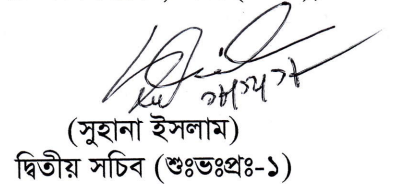 (সুহানা ইসলাম)
দ্বিতীয় সচিব (শুঃভঃপ্রঃ-১)